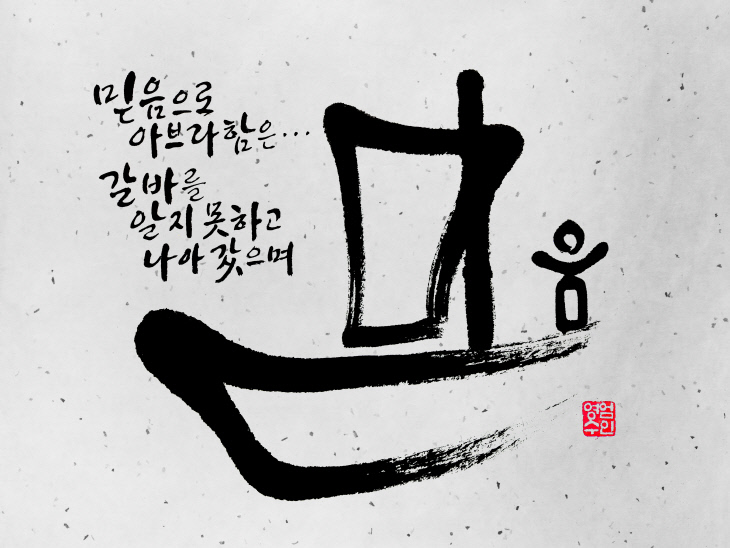 믿음으로
아브라함은...
갈 바를
알지 못하고
나아갔으며
믿음